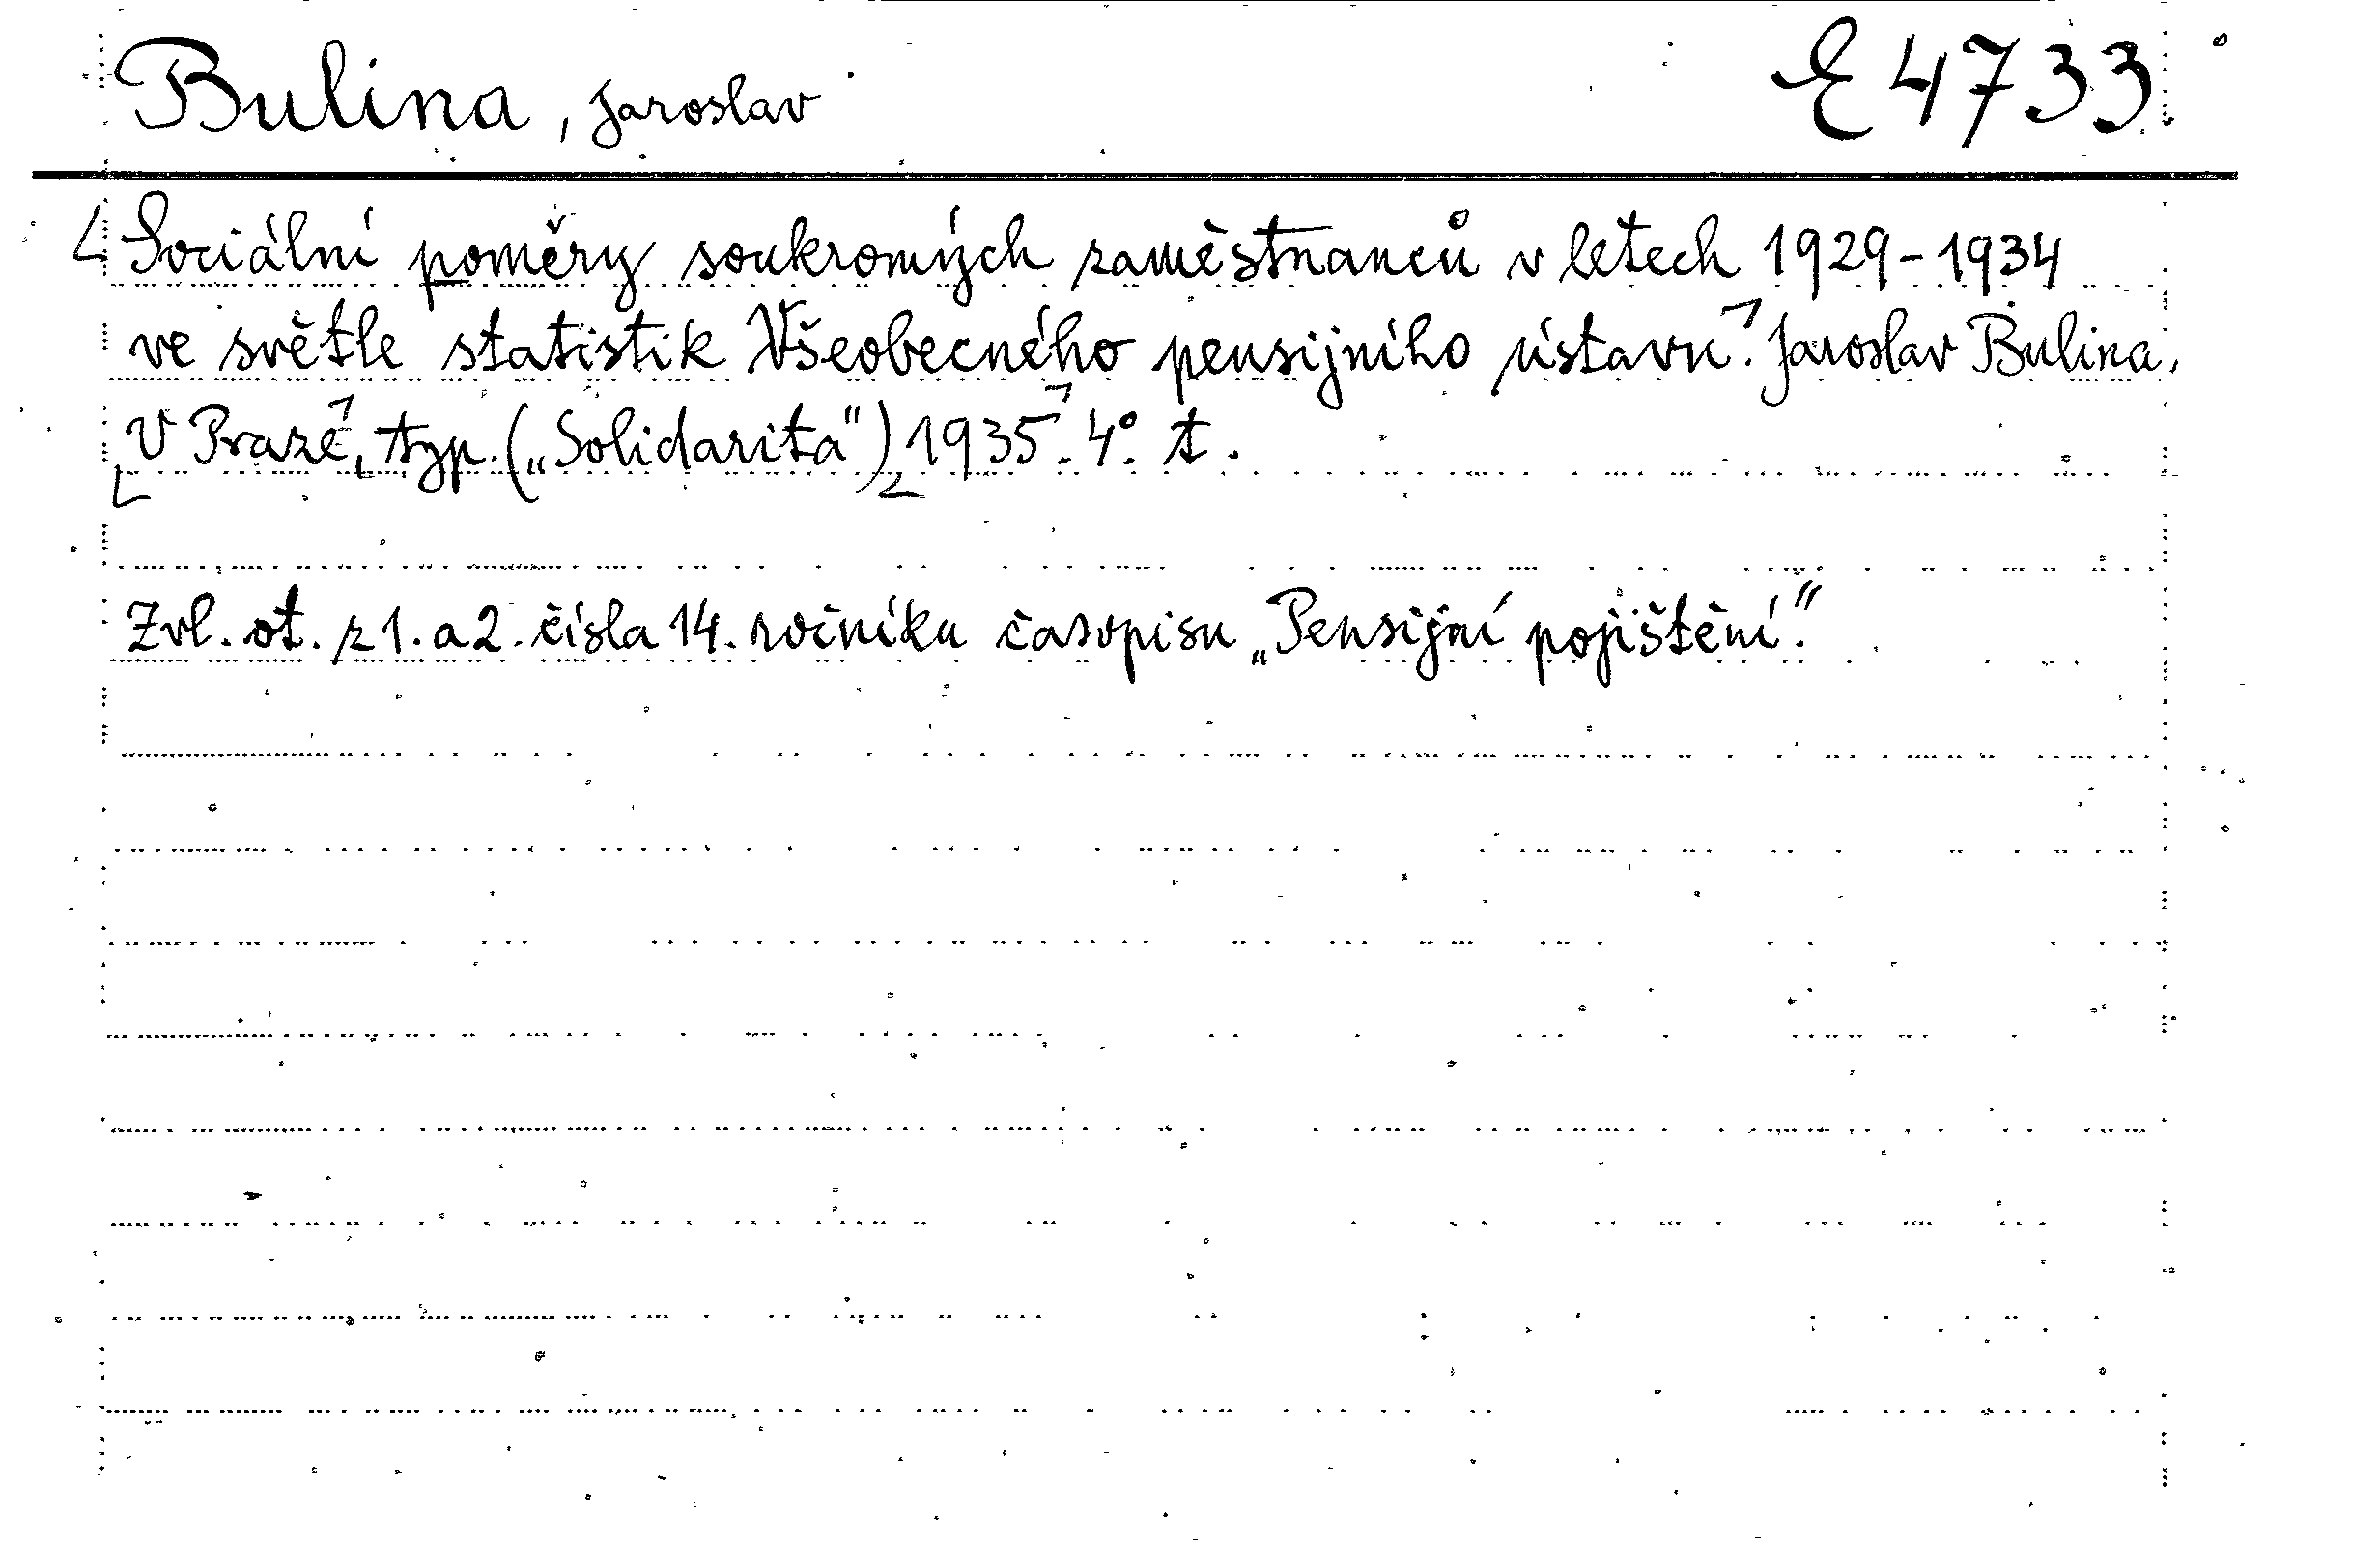 Bulina, Jaroslav E 4733
Sociální poměry soukromých zaměstnanců v letech 1929-1934
ve světle statistik Všeobecného pensijního ústavu. Jaroslav Bulina.
V Praze, typ. („Solidarita") 1935. 4°. t.
Zvl. ot. z 1. a 2. čísla 14. ročníku časopisu „Pensijní pojištění."